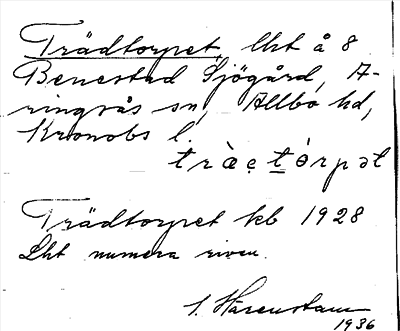 Trädtorpet, lht å 8
Benestad Sjögård, A-
ringsås sn, Allbo hd,
Kronobs l.
tràe̩ t̠órpət
Trädtorpet kb 1928
Lht numera riven.
S. Härenstam
1936